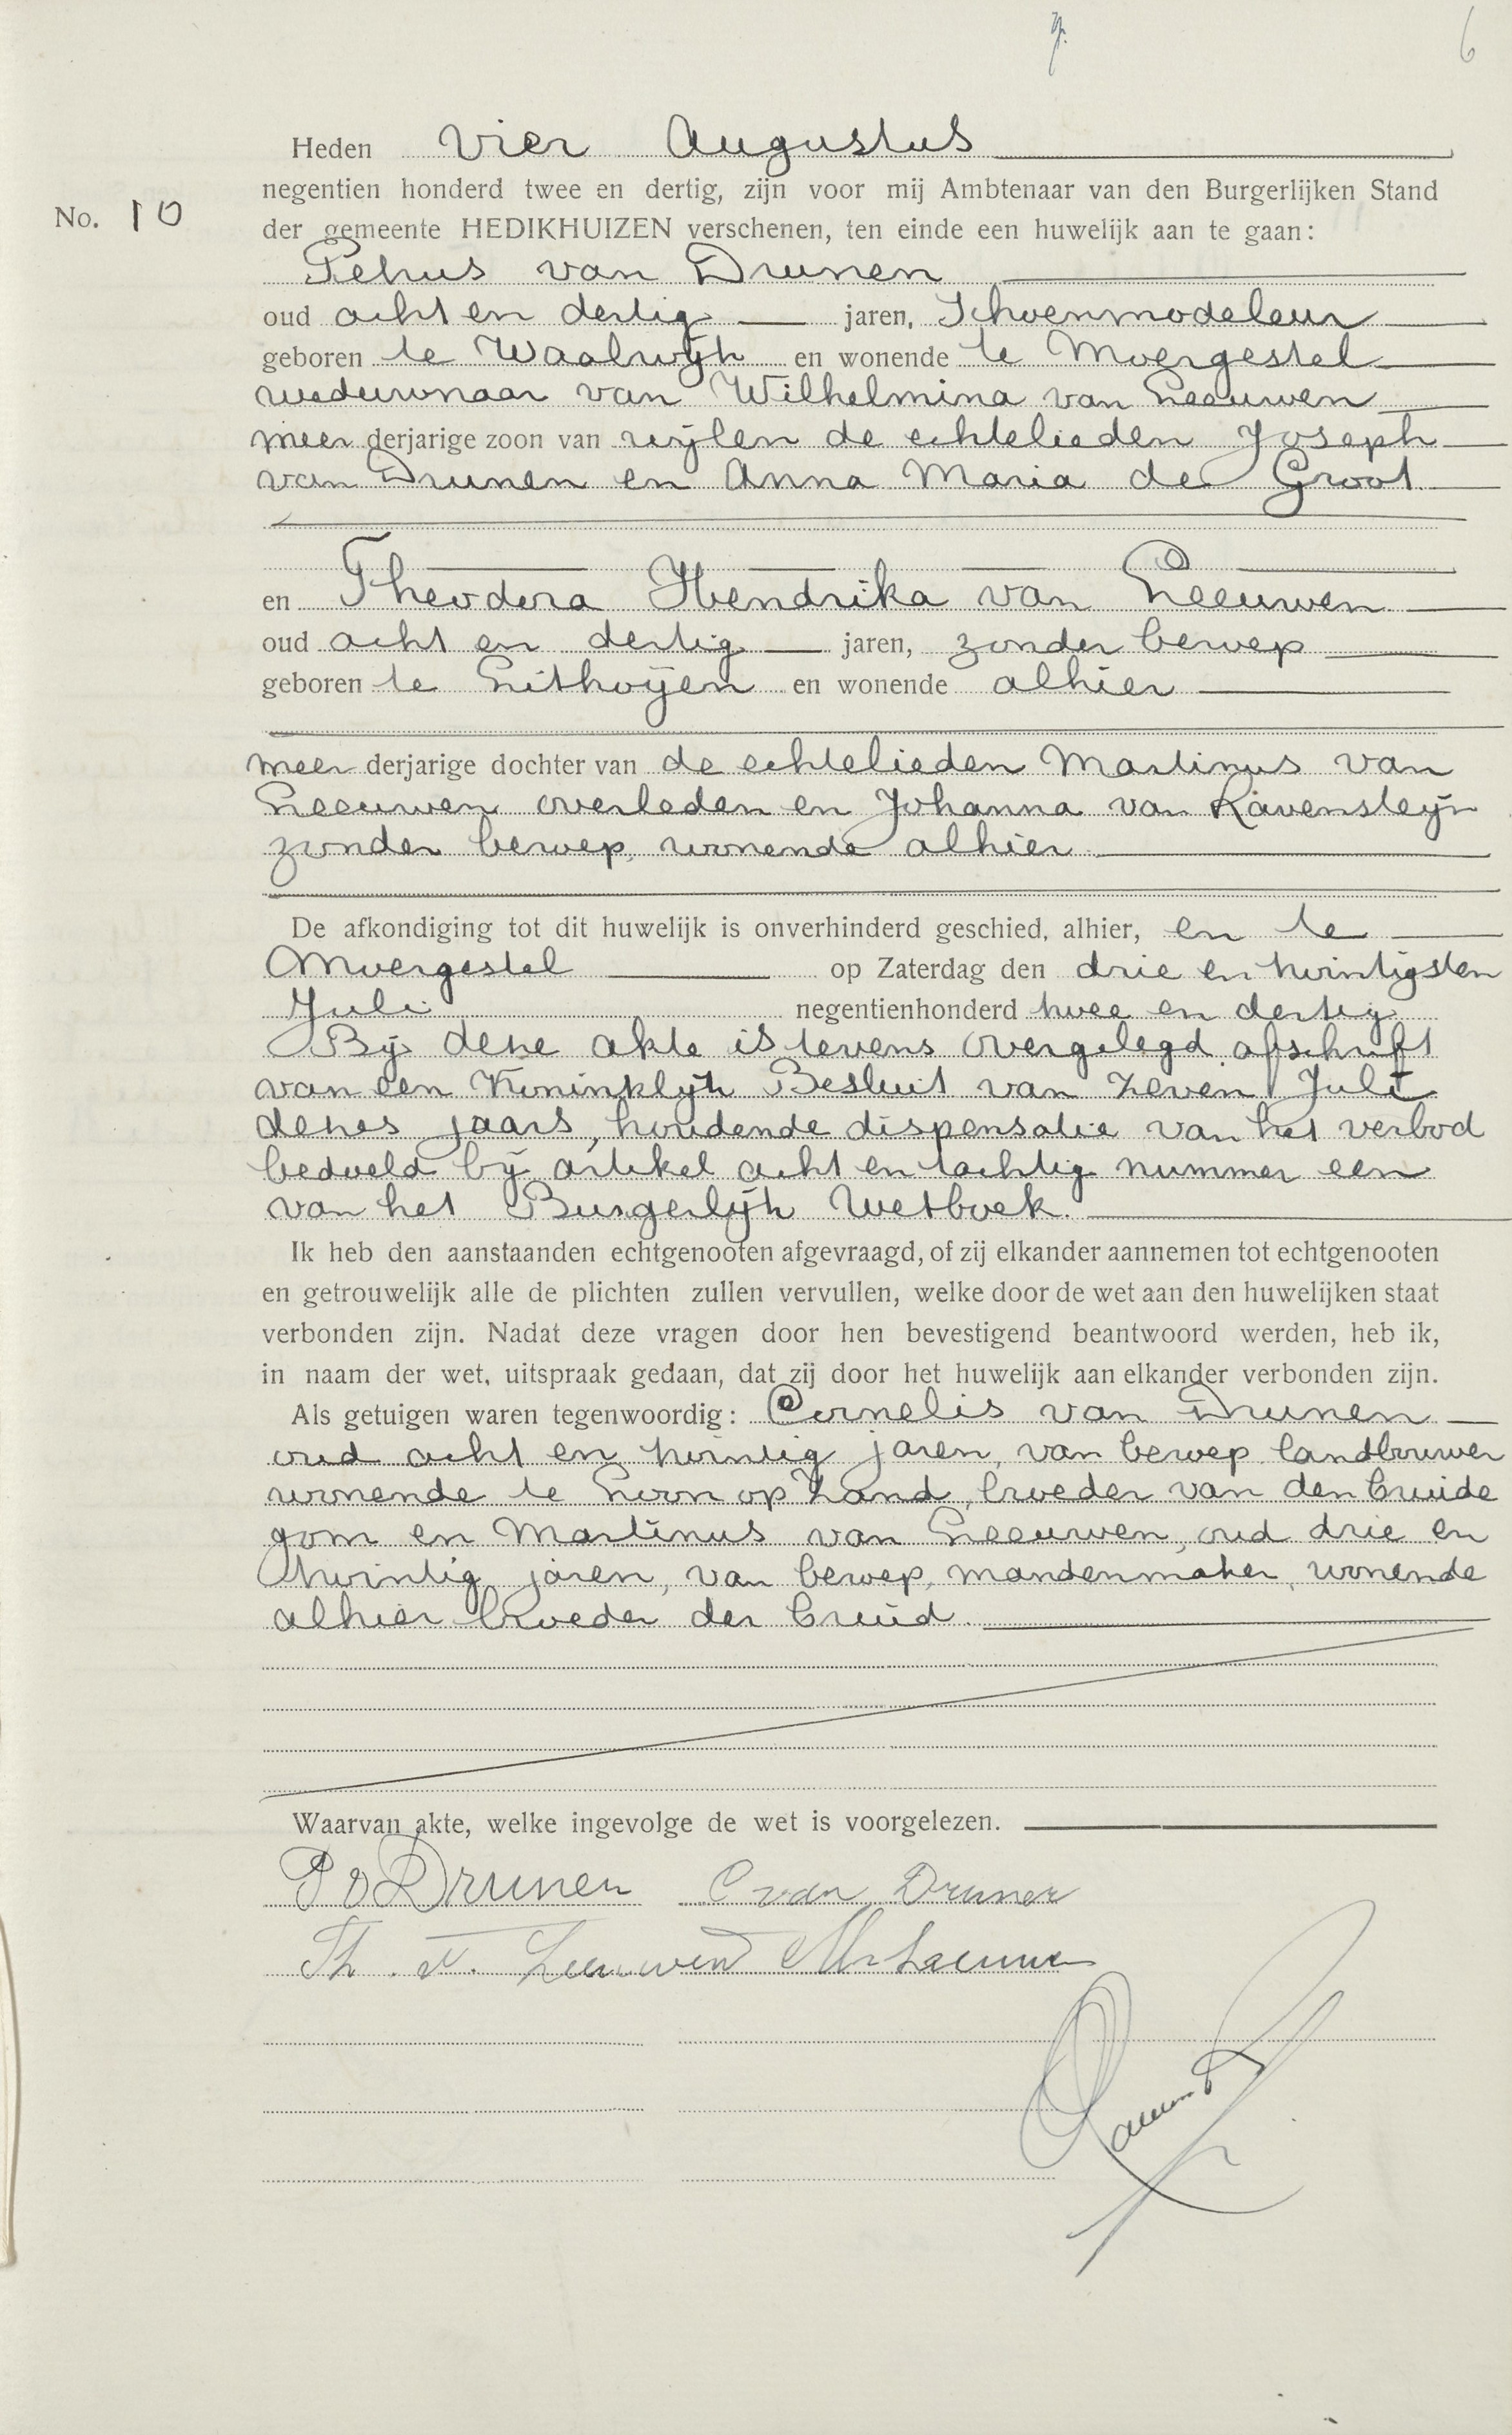 6
Heden vier Augustus
negentien honderd twee en dertig, zijn voor mij Ambtenaar van den Burgerlijken Stand
No. 10
der gemeente HEDIKHUIZEN verschenen, ten einde een huwelijk aan te gaan:
Petrus van Drunen
oud acht en dertig jaren, Schoenmodeleur
geboren te Waalwijk en wonende te Moergestel
weduwnaar van Wilhelmina van Leeuwen
meer derjarige zoon van wijlen de echtelieden Joseph
van Drunen en Anna Maria de Groot
en Theodora Hendrika van Leeuwen
oud acht en dertig jaren, zonder beroep
geboren te Lithoijen en wonende alhier
meer derjarige dochter van de echtelieden Martinus van
Leeuwen overleden en Johanna van Ravensteijn
zonder beroep, wonende alhier
De afkondiging tot dit huwelijk is onverhinderd geschied, alhier, en te
Moergestel op Zaterdag den drie en twintigsten
Juli negentienhonderd twee en dertig
Bij deze akte is tevens overgelegd afschrift
van een Koninklijk Besluit van zeven Juli
dezes jaars, houdende dispensatie van het verbod
bedoeld bij artikel acht en tachtig nummer een
van het Burgerlijk Wetboek.
Ik heb den aanstaanden echtgenooten afgevraagd, of zij elkander aannemen tot echtgenooten
en getrouwelijk alle de plichten zullen vervullen, welke door de wet aan den huwelijken staat
verbonden zijn. Nadat deze vragen door hen bevestigend beantwoord werden, heb ik,
in naam der wet, uitspraak gedaan, dat zij door het huwelijk aan elkander verbonden zijn.
Als getuigen waren tegenwoordig: Cornelis van Drunen
oud acht en twintig jaren, van beroep landbouwer
wonende te Loon op Zand, broeder van den bruide
gom en Martinus van Leeuwen, oud drie en
twintig jaren, van beroep mandenmaker, wonende
alhier broeder der bruid.
Waarvan akte, welke ingevolge de wet is voorgelezen.
P v Drunen C van Drunen
Th. v. Leeuwen M v Leeuwen